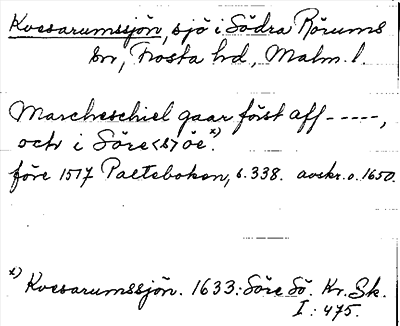 Kvesarumssjön, sjö i Södra Rörums
sn, Frosta hd, Malm. l.
Marcheschiel gaar först aff -----,
och i Söre<s> öe x).
före 1517 Paltebokon, s. 338. avskr. o. 1650.
x) Kvesarumssjön. 1633: Söre Sö. Kr. Sk.
I: 475.